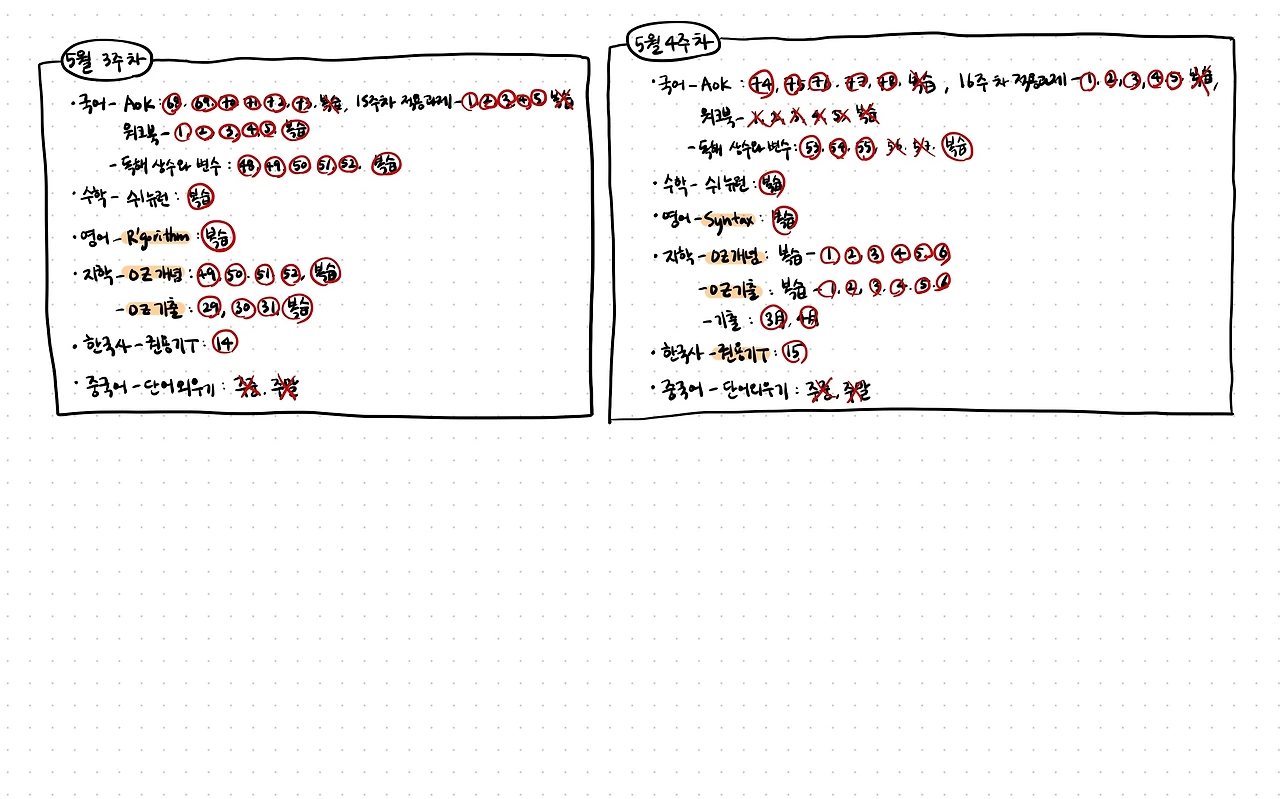 5월 3주차
·국어 - AOK : 68. 69. 70. 71. 72. 73. 복습, 15주차 적용과제 - 1. 2. 3. 4. 5 복습
워크북 - 1, 2. 3, 4. 5. 복습
- 독해 상수와 변수 : 48, 49, 50 51, 52. 복습
·수학 - 쉬뉴런 : 복습
·영어 - R'gorithm : 복습
·지학 - OZ개념 : 49, 50. 51 52, 복습
- OZ기출 : 29, 30 31, 복습
·한국사 - 권용기T : 14
·중국어 - 단어외우기 : 주중, 주말
5월 4주차
·국어 - AOK : 74, 75, 76. 77. 78. 복습, 16주차 적용과제 - 1. 2, 3, 4. 5. 복습,
워크북 - 1, 2, 3, 4 5 복습
- 독해 상수와 변수 : 53. 54. 55, 56. 57. 복습
·수학 - 쉬뉴런 : 복습
·영어 - Syntax : 복습
·지학 - OZ개념 : 복습 - 1 2, 3 4 5. 6
- OZ기출 : 복습 - 1. 2, 3. 4. 5. 6
- 기출 : 3月, 4月
·한국사 - 권용기T : 15
·중국어 - 단어외우기 : 주중, 주말